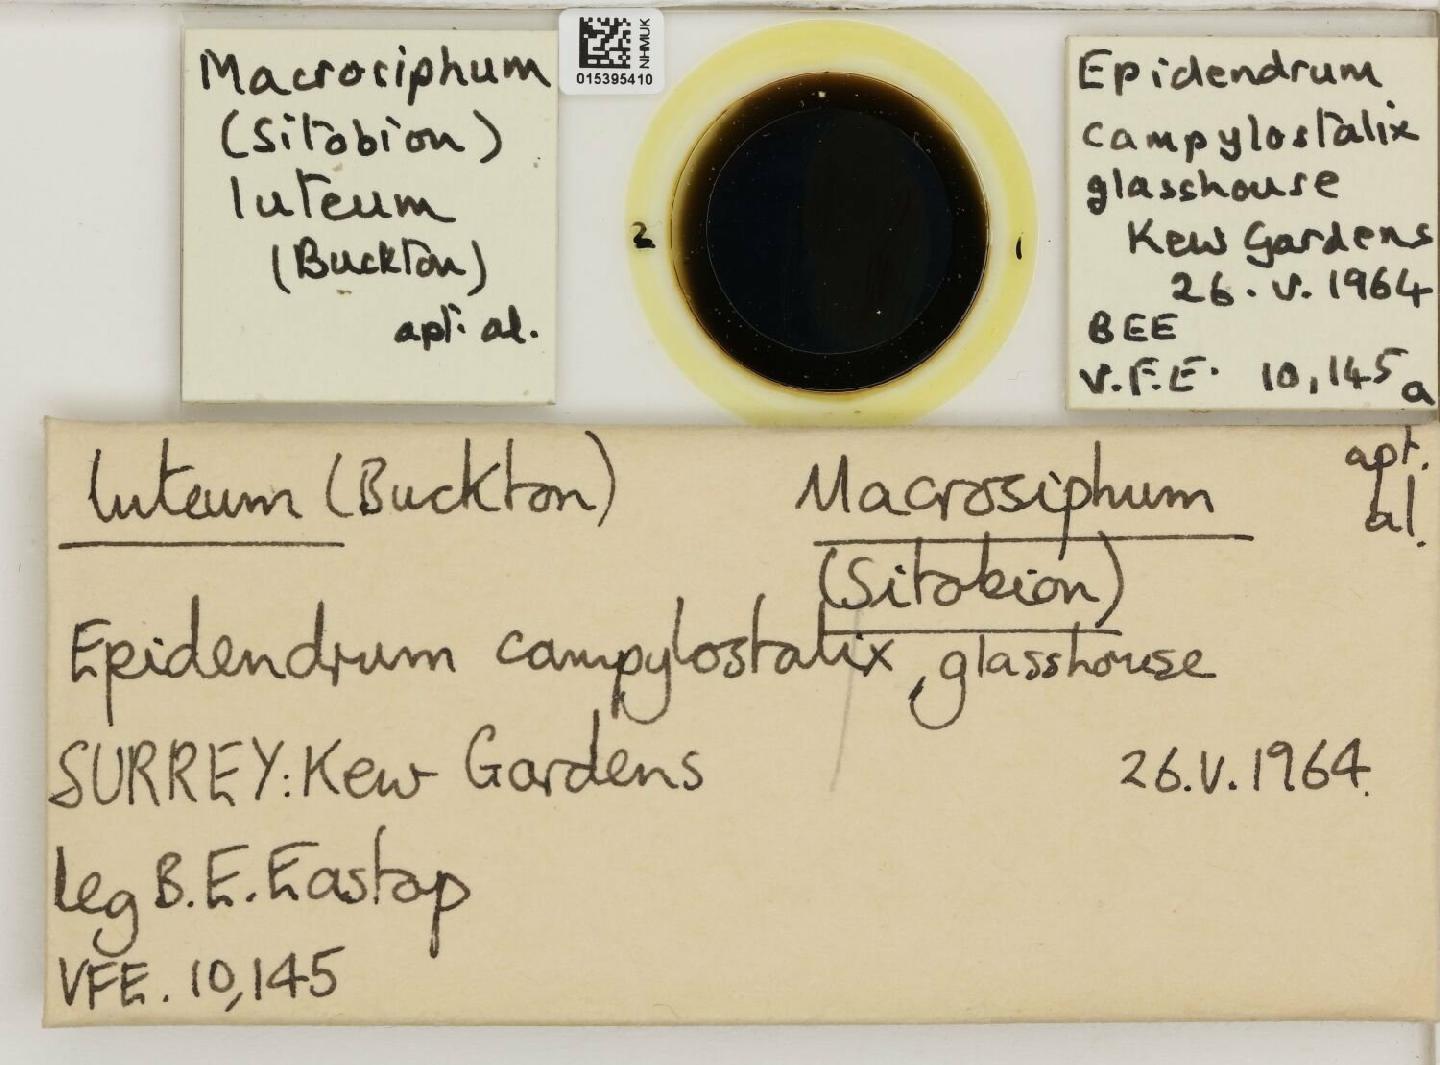 Macrosiphum
(Sitobion)
luteum
(Buckton)
apt. al.
NHMUK
015395410
2
1
Epidendrum
campylostalix
glasshouse
Kew Gardens
26.V.1964
BEE
V.F.E. 10,145a
luteum (Buckton) Macrosiphum apt.
al.
(Sitobion)
Epidendrum campylostalix, glasshouse
SURREY: Kew Gardens 26.V.1964.
leg B.E. Eastop
VFE. 10,145